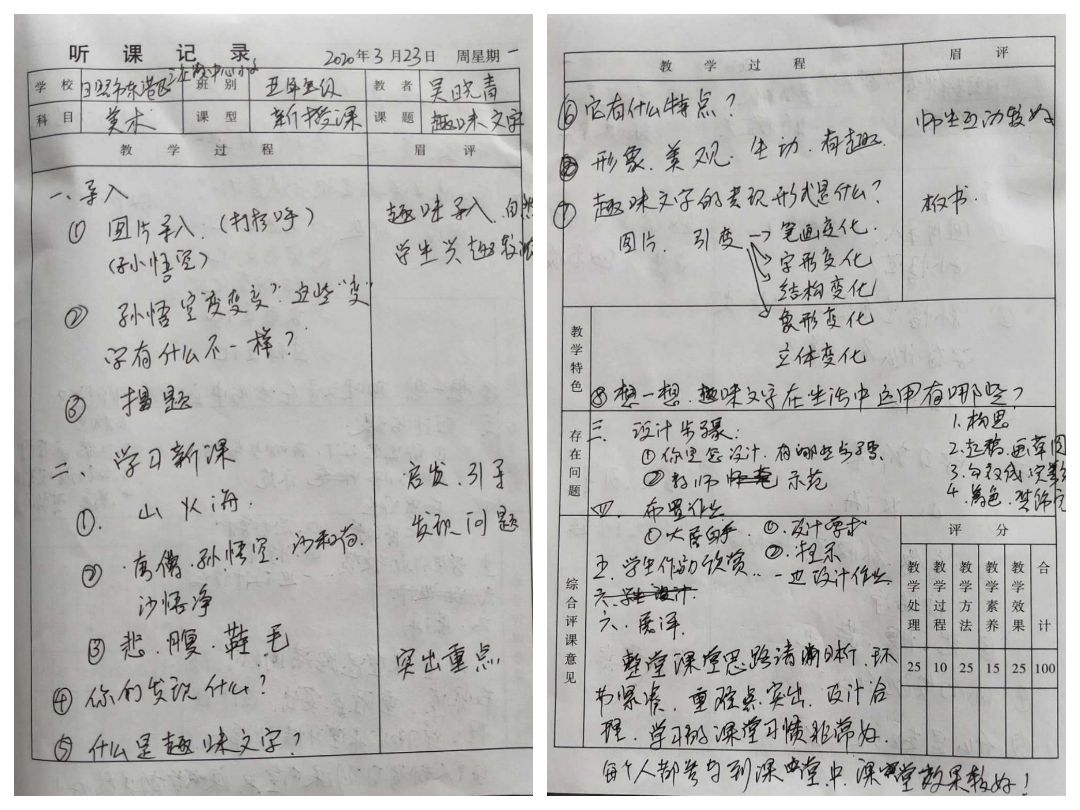 听课记录 2020年3月23日 周星期一
学校 日照市东港区三庄镇中心小学 班别 五年级 教者 吴晓青
科目 美术 课型 新授课 课题 趣味文字
教学过程 眉评
一、导入
① 图片导入.(打招呼) 趣味导入.自然
(孙小悟空) 学生兴趣较浓
② 孙悟空"变变变?"这些"变"
字有什么不一样?
③ 揭题
二、学习新课 启发.引导
①. 山 火 海. 发现问题
② 唐僧.孙悟空.沙和尚.
沙悟净
③ 悲.腹.鞋 毛 突出重点
④ 你的发现什么?
⑤ 什么是趣味文字?
教学过程 眉评
⑥ 它有什么特点? 师生互动较好
形象.美观.生动.有趣.
⑦ 趣味文字的表现形式是什么? 板书.
图片. 引变→笔画变化.
字形变化
结构变化
象形变化
立体变化
教学特色
⑧想一想.趣味文字在生活中运用有哪些?
存在问题
三、设计步骤: 1.构思.
①你是怎设计.有哪些步骤. 2.起稿.画草图
②教师 示范 3.勾
四、布置作业 4.着色.
① ①.设计要求
②.提示
五.学生作品欣赏. 一边设计作业
六.学生设计.
六.展评.
综合评课意见
评分
教学处理 教学过程 教学方法 教学素养 教学效果 合计
25 10 25 15 25 100
整堂课堂思路清晰.环
节紧凑.重难点突出.设计合
理.学习的课堂习惯非常好.
每个人都参与到课堂中.课堂效果较好!